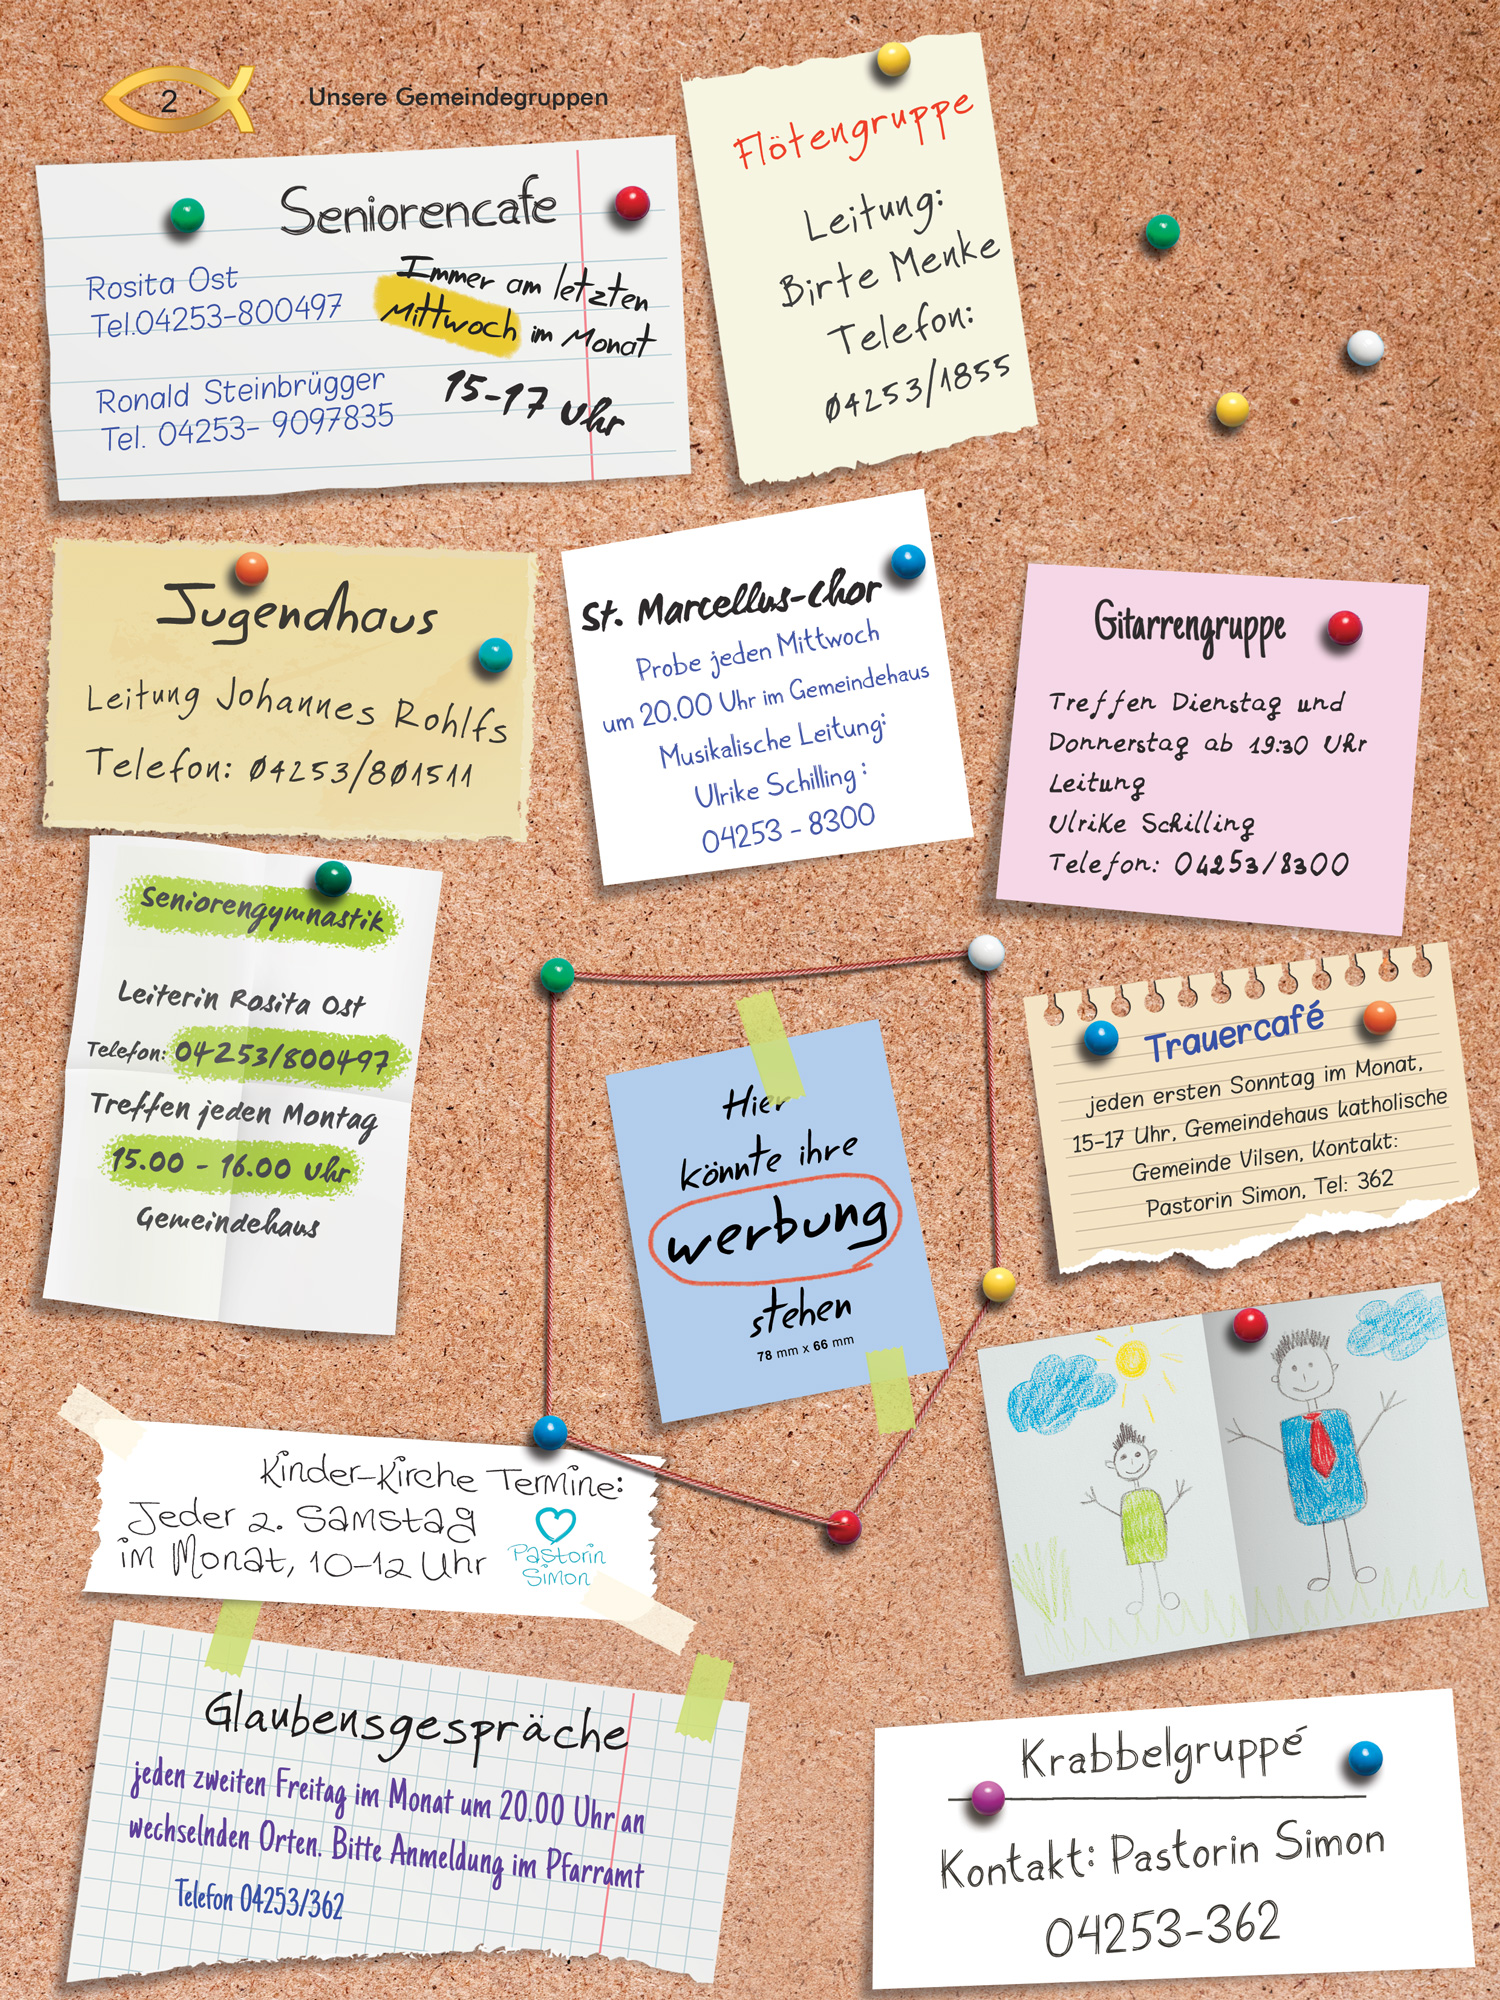 2
Unsere Gemeindegruppen
Seniorencafe
Rosita Ost
Tel.04253-800497
Ronald Steinbrügger
Tel. 04253- 9097835
Immer am letzten
Mittwoch im Monat
15-17 Uhr
Flötengruppe
Leitung:
Birte Menke
Telefon:
04253/1855
Jugendhaus
Leitung Johannes Rohlfs
Telefon: 04253/801511
St. Marcellus-Chor
Probe jeden Mittwoch
um 20.00 Uhr im Gemeindehaus
Musikalische Leitung:
Ulrike Schilling:
04253 - 8300
Gitarrengruppe
Treffen Dienstag und
Donnerstag ab 19:30 Uhr
Leitung
Ulrike Schilling
Telefon: 04253/8300
Seniorengymnastik
Leiterin Rosita Ost
Telefon: 04253/800497
Treffen jeden Montag
15.00 - 16.00 Uhr
Gemeindehaus
Hier
könnte ihre
werbung
stehen
78 mm x 66 mm
Trauercafé
jeden ersten Sonntag im Monat,
15-17 Uhr, Gemeindehaus katholische
Gemeinde Vilsen, Kontakt:
Pastorin Simon, Tel: 362
Kinder-Kirche Termine:
Jeder 2. Samstag
im Monat, 10-12 Uhr
Pastorin
Simon
Glaubensgespräche
jeden zweiten Freitag im Monat um 20.00 Uhr an
wechselnden Orten. Bitte Anmeldung im Pfarramt
Telefon 04253/362
Krabbelgruppé
Kontakt: Pastorin Simon
04253-362